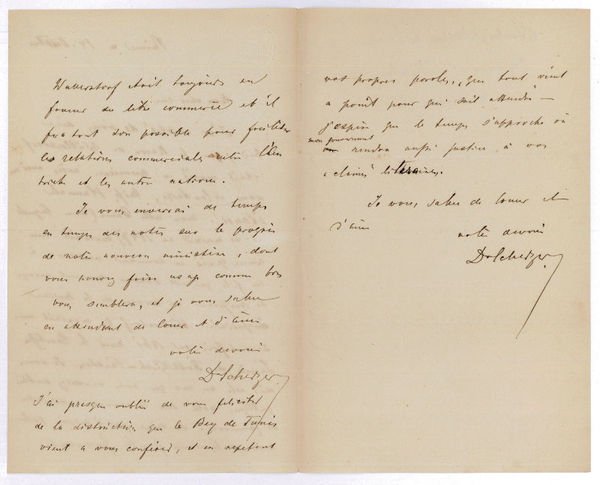 Wullerstorf était toujours en
faveur du libre commerce et il
fera tout son possible pour faciliter
les relations commerciales entre l'Au
triche et les autres nations.
Je vous enverrai de temps
en temps des notes sur le progrès
de notre nouveau ministère, dont
vous pouvez faire usage comme bon
vous semblera, et je vous salue
en attendant de coeur et d'âme
votre devoué
Dr Scherzer
J'ai presque oublié de vous feliciter
de la distinction que le Bey de Tunis
vient a vous conférer, et en repetant
vos propres paroles, que tout vient
a point pour qui sait attendre —
j'espère que le temps s'approche où
mon gouvernement
rendra aussi justice à vos
litteraires.
Je vous salue de coeur et
d'âme
votre devoué
Dr Scherzer.